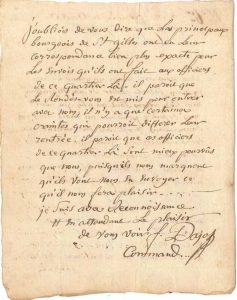 j'oubliois de vous dire que les principaux
bourgeois de St Gilles ont eu leur
correspondance bien plus exacte pour
les envois qu'ils ont fait aux officiers
de ce quartier là. il paroit que
le rendes vous mis pour entrer
avec nous, il n'y a que certaines
craintes qui pourroit differer leur
rentrée, il paroit que os officiers
de ce quartier là sont mieux
que nous, puisqu'ils nous marquent
qu'ils vont nous en envoyer ce
qu'il nous fera plaisir
je suis avec reconnoisance
en attendant le plaisir
de vous voir f.
Command